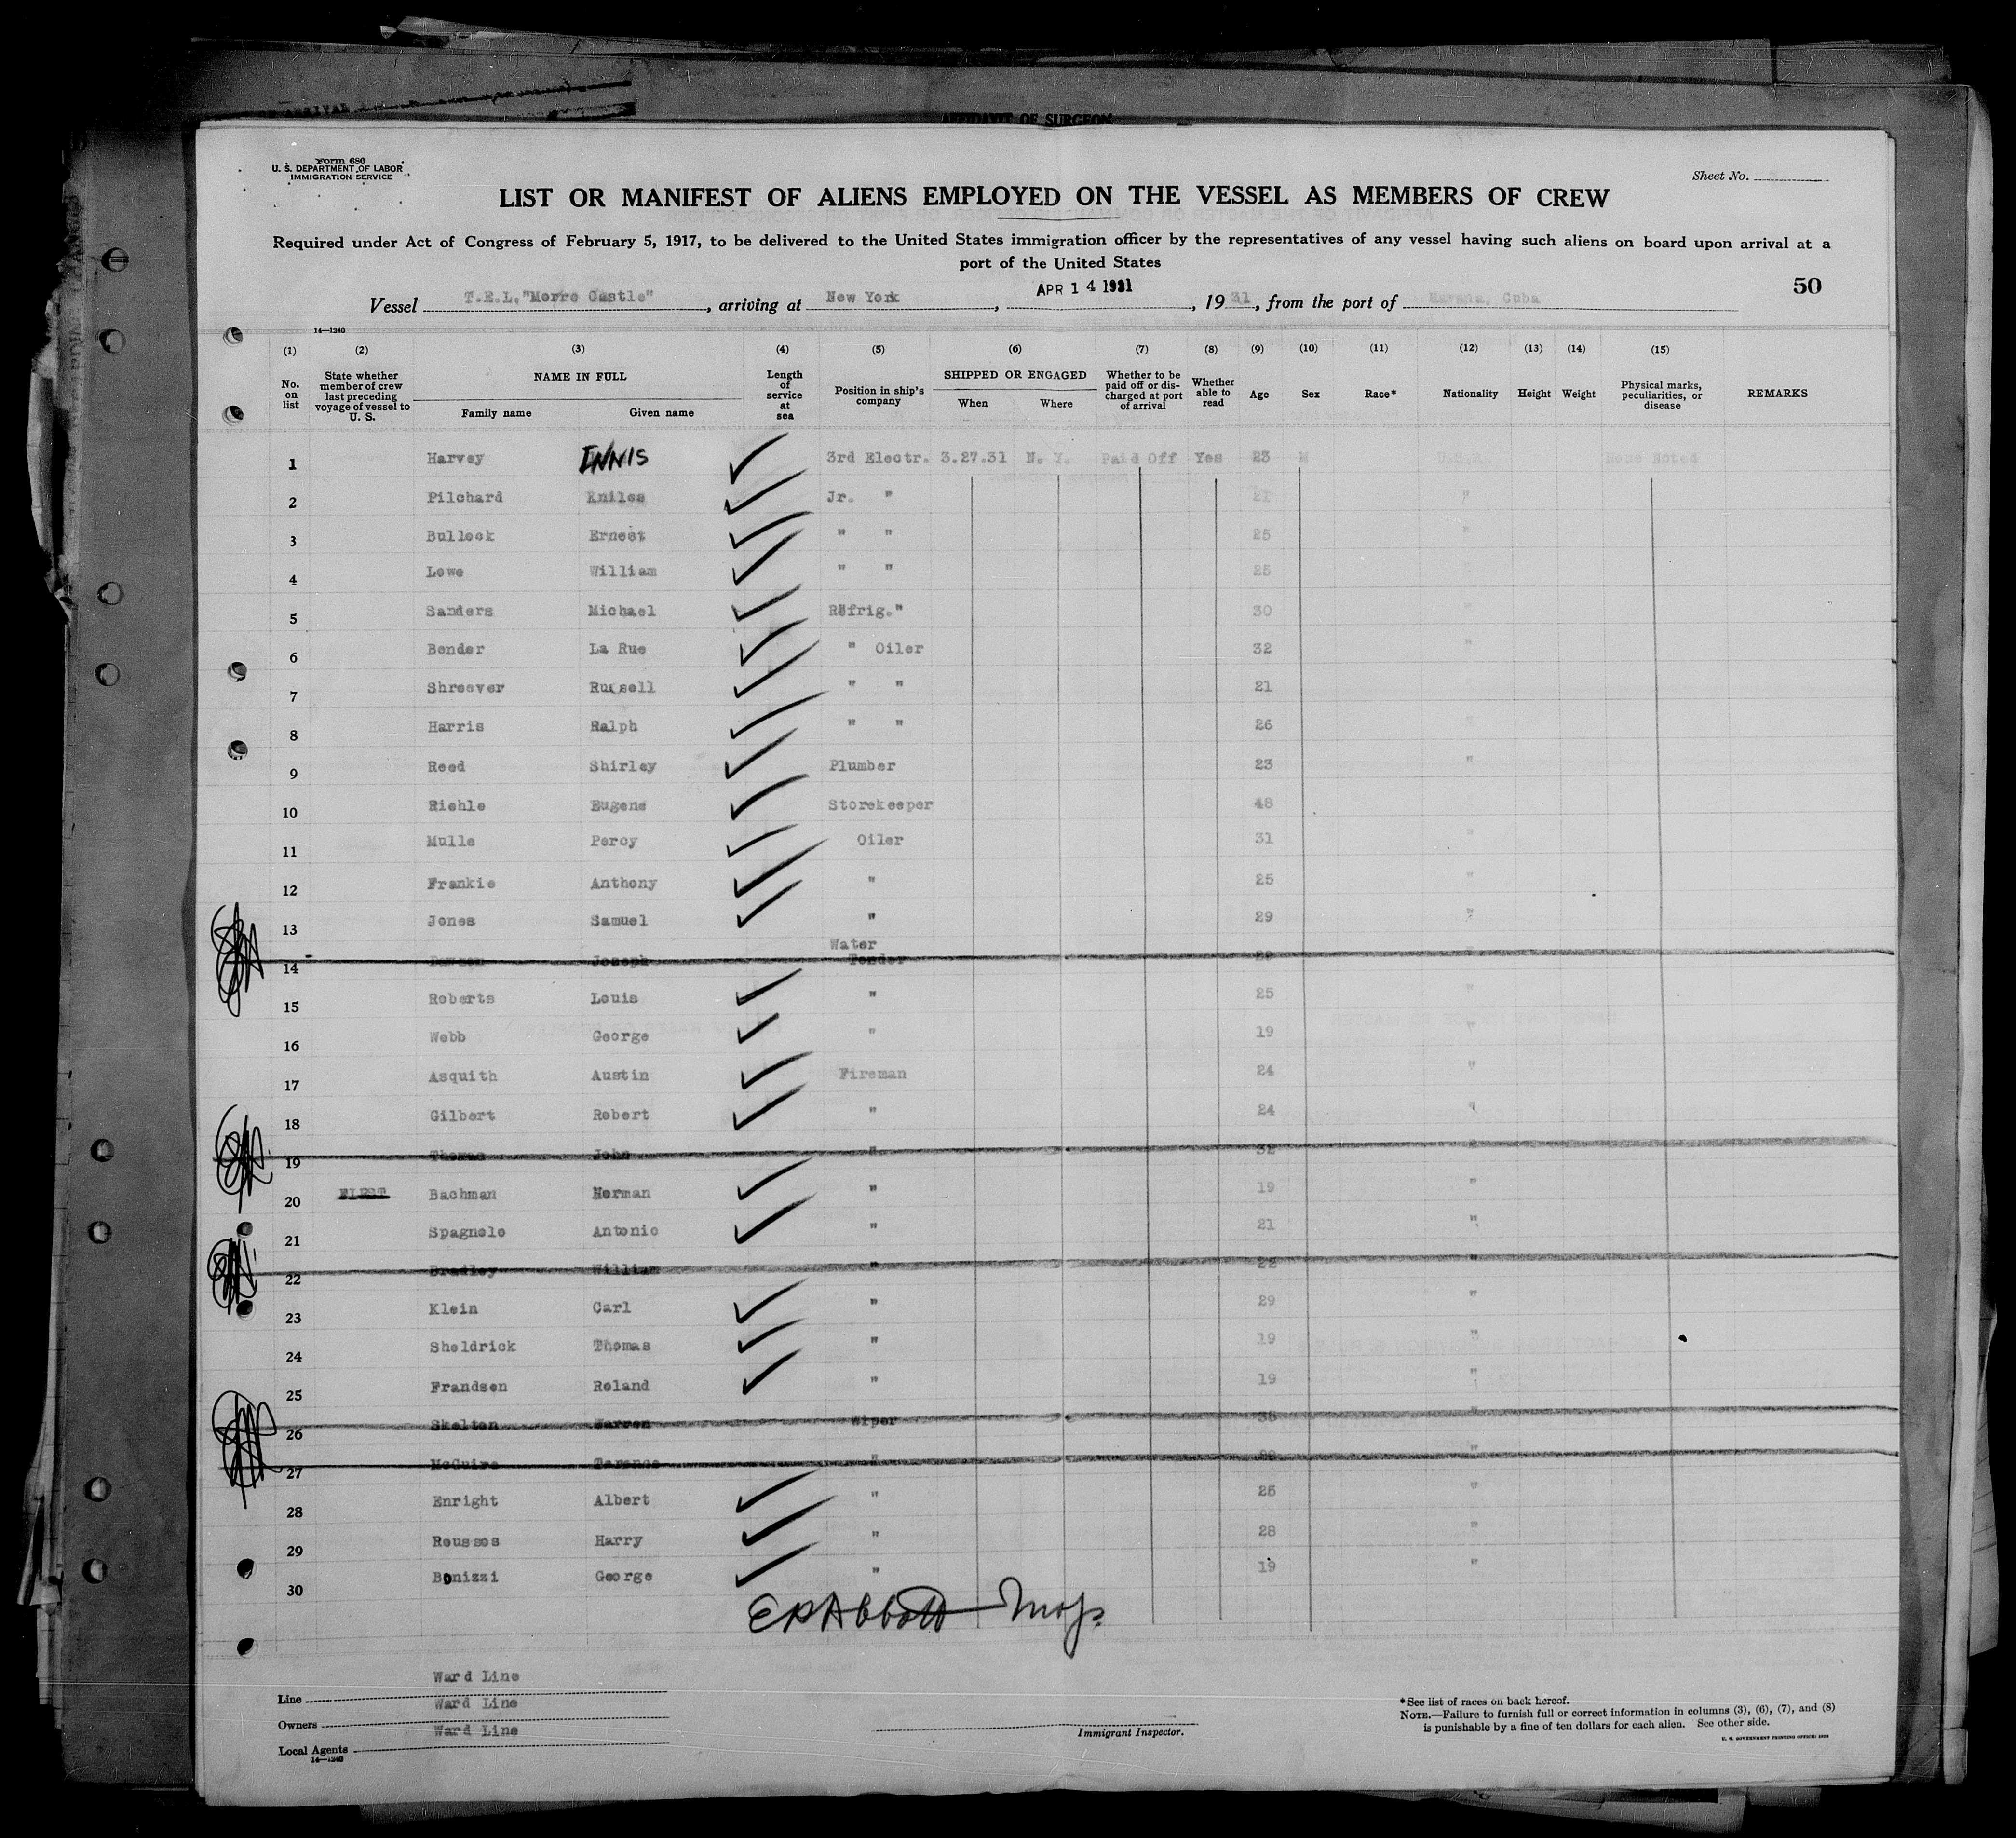 AFFIDAVIT OF SURGEON
Form 680
U. S. DEPARTMENT OF LABOR
IMMIGRATION SERVICE
Sheet No.
LIST OR MANIFEST OF ALIENS EMPLOYED ON THE VESSEL AS MEMBERS OF CREW
Required under Act of Congress of February 5, 1917, to be delivered to the United States immigration officer by the representatives of any vessel having such aliens on board upon arrival at a
port of the United States
50
Vessel T.E.L. "Morro Castle", arriving at New York, APR 14 1931, 1931, from the port of Havana, Cuba
14—1240
(1) (2) (3) (4) (5) (6) (7) (8) (9) (10) (11) (12) (13) (14) (15)
No. on list State whether member of crew last preceding voyage of vessel to U. S. NAME IN FULL Family name Given name Length of service at sea Position in ship's company SHIPPED OR ENGAGED When Where Whether to be paid off or discharged at port of arrival Whether able to read Age Sex Race* Nationality Height Weight Physical marks, peculiarities, or disease REMARKS
1 Harvey INNIS 3rd Electr. 3.27.31 N. Y. Paid Off Yes 23 M U.S.A. None Noted
2 Pilchard Kniles Jr. " 21 "
3 Bullock Ernest " " 25 "
4 Lowe William " " 25
5 Sanders Michael Refrig." 30 "
6 Bender La Rue " Oiler 32 "
7 Shreever Russell " " 21
8 Harris Ralph " " 26
9 Reed Shirley Plumber 23 "
10 Riehle Eugene Storekeeper 48
11 Mulle Percy Oiler 31 "
12 Frankie Anthony " 25 "
13 Jones Samuel " 29 "
14 Joseph Water Tender "
15 Roberts Louis " 25 "
16 Webb George " 19 "
17 Asquith Austin Fireman 24 "
18 Gilbert Robert " 24 "
19 Thomas John " 32 "
20 FIRST Bachman Herman " 19 "
21 Spagnolo Antonio " 21 "
22 Bradley William " 22 "
23 Klein Carl " 29 "
24 Sheldrick Thomas " 19 "
25 Frandsen Roland " 19 "
26 Skelton Warren Wiper 36 "
27 McGuire Terence " "
28 Enright Albert " 25 "
29 Roussos Harry " 28 "
30 Bonizzi George " 19 "
E P Abbott
Line Ward Line
Owners Ward Line
Local Agents Ward Line
14—1240
Immigrant Inspector.
*See list of races on back hereof.
NOTE.—Failure to furnish full or correct information in columns (3), (6), (7), and (8)
is punishable by a fine of ten dollars for each alien. See other side.
U. S. GOVERNMENT PRINTING OFFICE